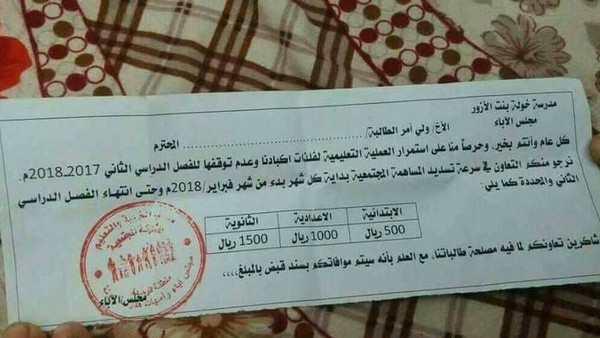 مدرسة خولة بنت الأزور
مجلس الآباء
الأخ/ ولي أمر الطالبة/ المحترم
كل عام وأنتم بخير، وحرصاً منا على استمرار العملية التعليمية لفلذات اكبادنا وعدم توقفها للفصل الدراسي الثاني 2017ـ2018م.
نرجو منكم التعاون في سرعة تسديد المساهمة المجتمعية بداية كل شهر بدء من شهر فبراير/2018م وحتى انتهاء الفصل الدراسي
الثاني والمحددة كما يلي:
الابتدائية الاعدادية الثانوية
500 ريال 1000 ريال 1500 ريال
شاكرين تعاونكم لما فيه مصلحة طالباتنا، مع العلم بأنه سيتم موافاتكم بسند قبض بالمبلغ،،،،
مجلس الآباء
التربية والتعليم